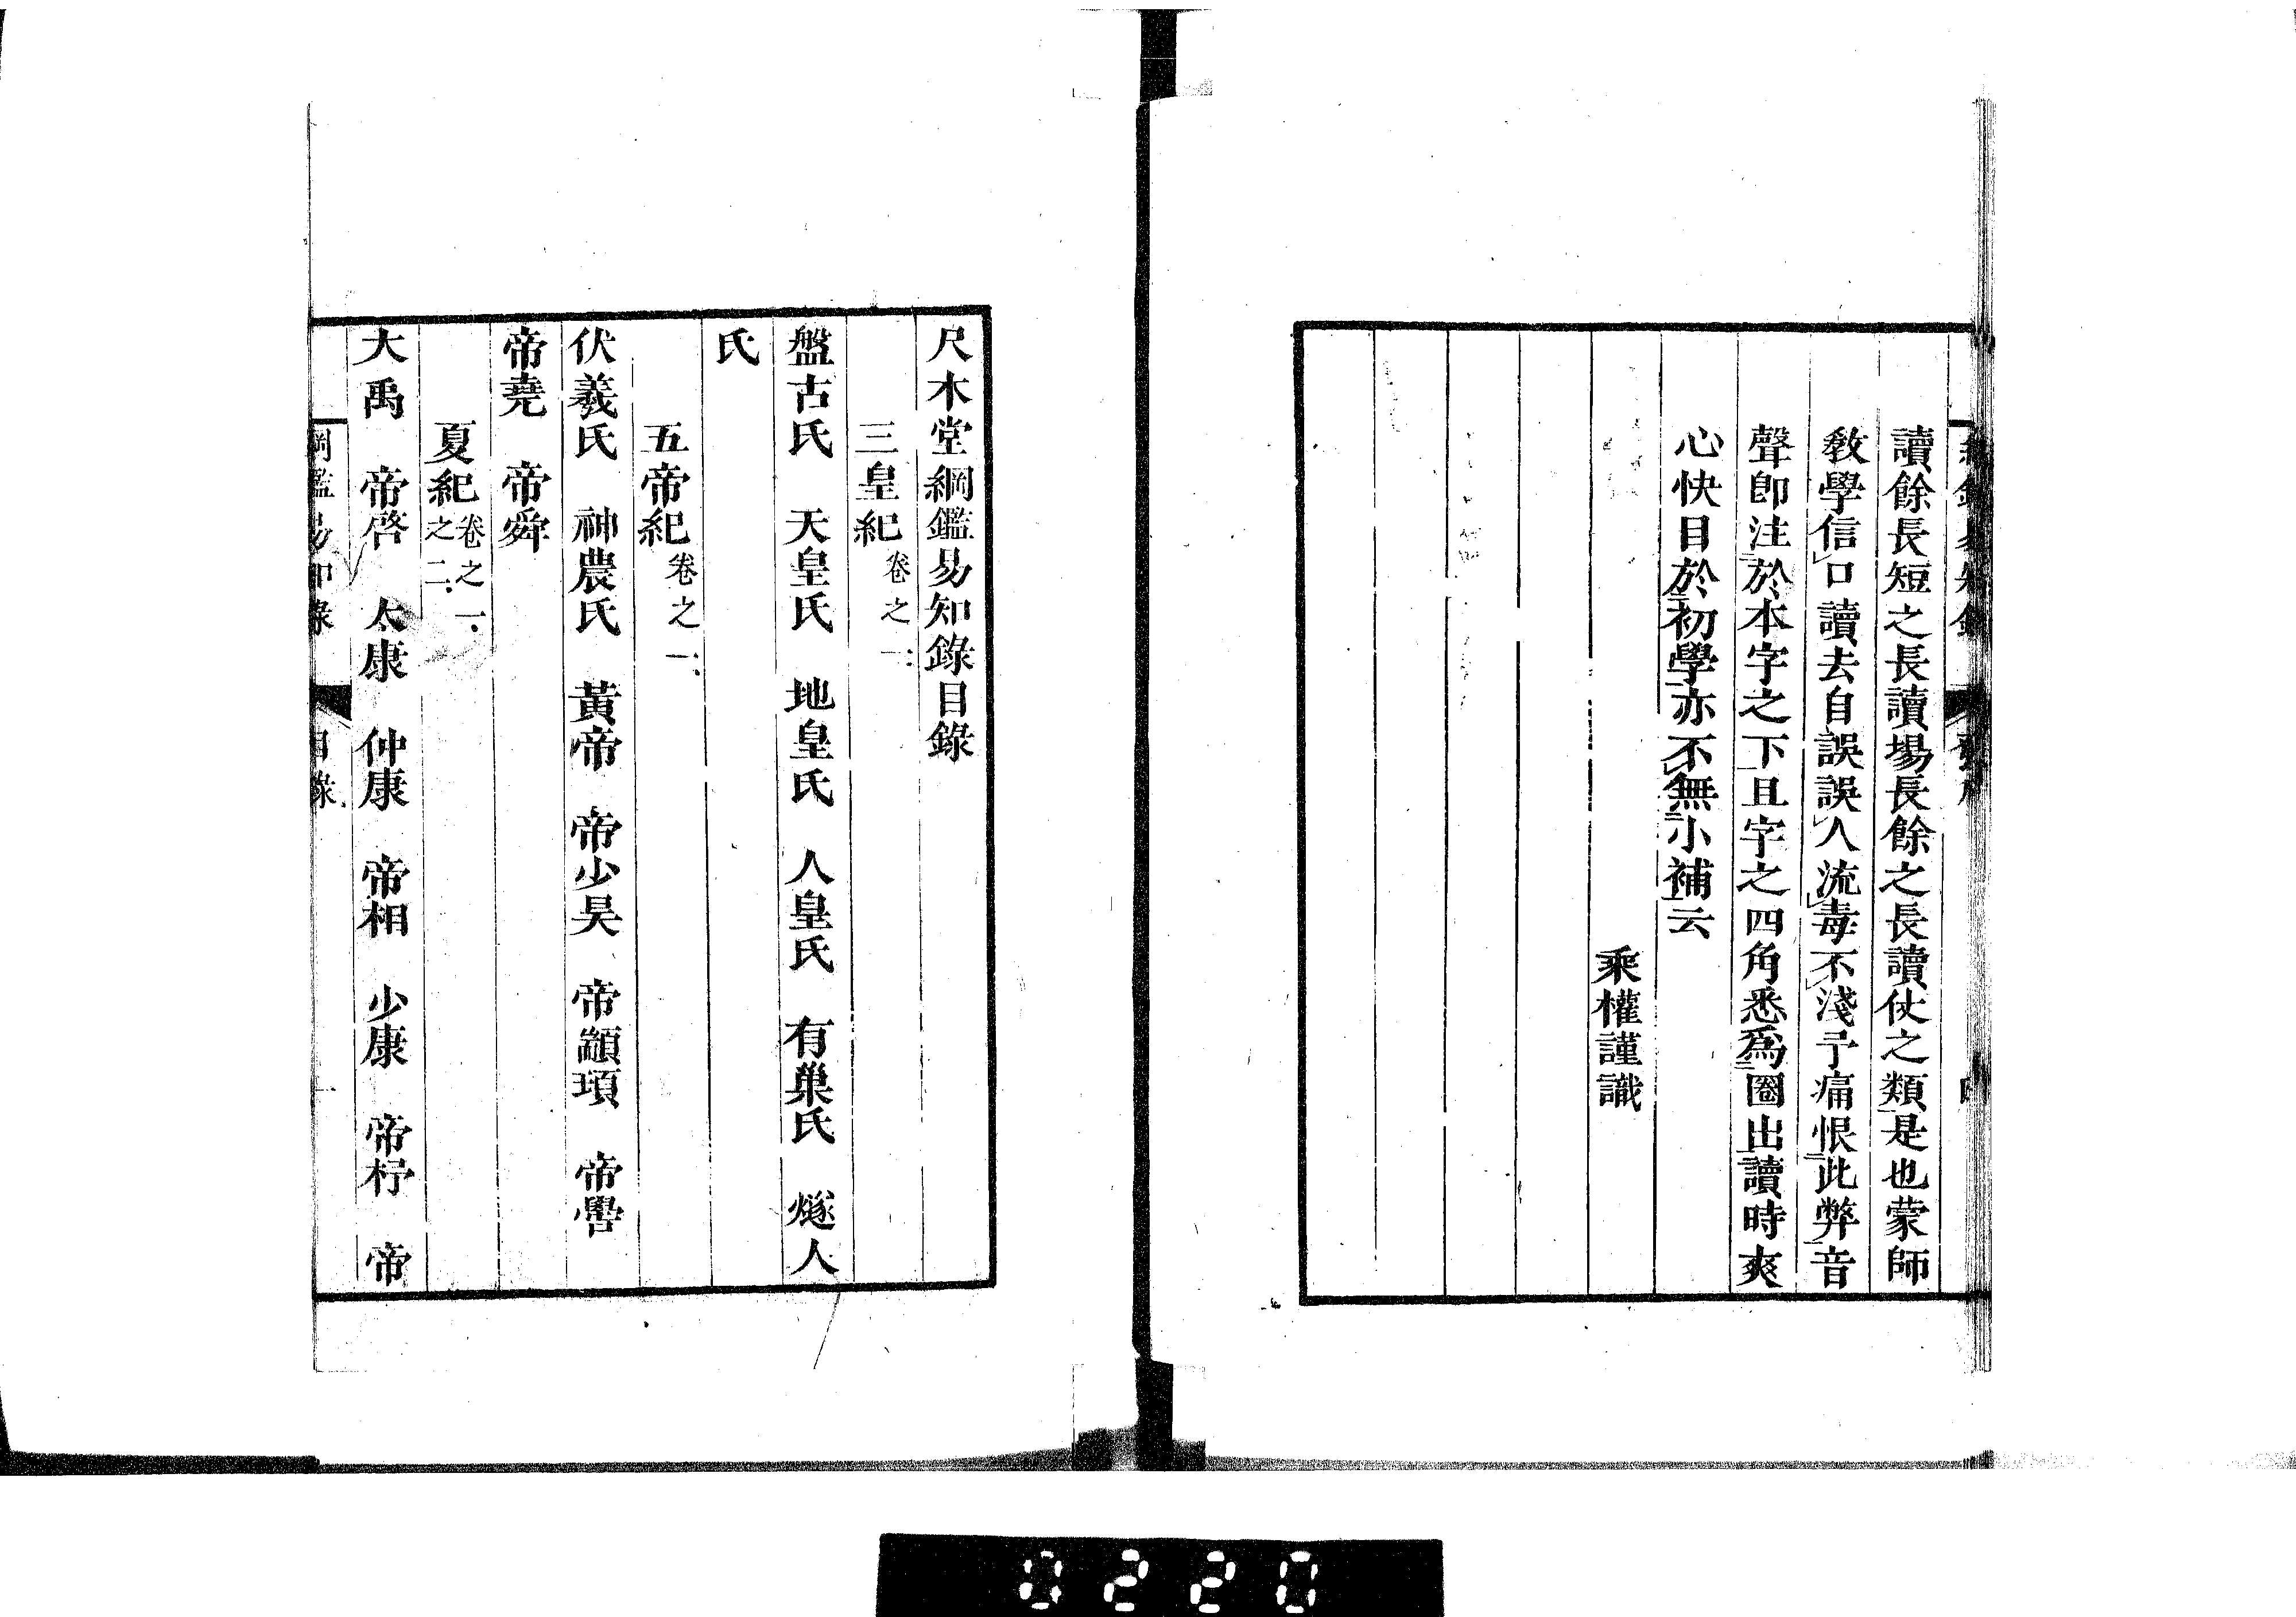 讀餘長短之長讀場長餘之長讀仗之類是也蒙師
教學信口讀去自誤誤人流毒不淺予痛恨此弊音
聲即注於本字之下且字之四角悉爲圈出讀時爽
心快目於初學亦不無小補云
乘權謹識
尺木堂綱鑑易知錄目錄
三皇紀 卷之一
盤古氏 天皇氏 地皇氏 人皇氏 有巢氏 燧人
氏
五帝紀 卷之一
伏羲氏 神農氏 黃帝 帝少昊 帝顓頊 帝嚳
帝堯 帝舜
夏紀 卷之一 之二
大禹 帝啓 太康 仲康 帝相 少康 帝杼 帝
綱鑑易知錄 目錄 一
0220